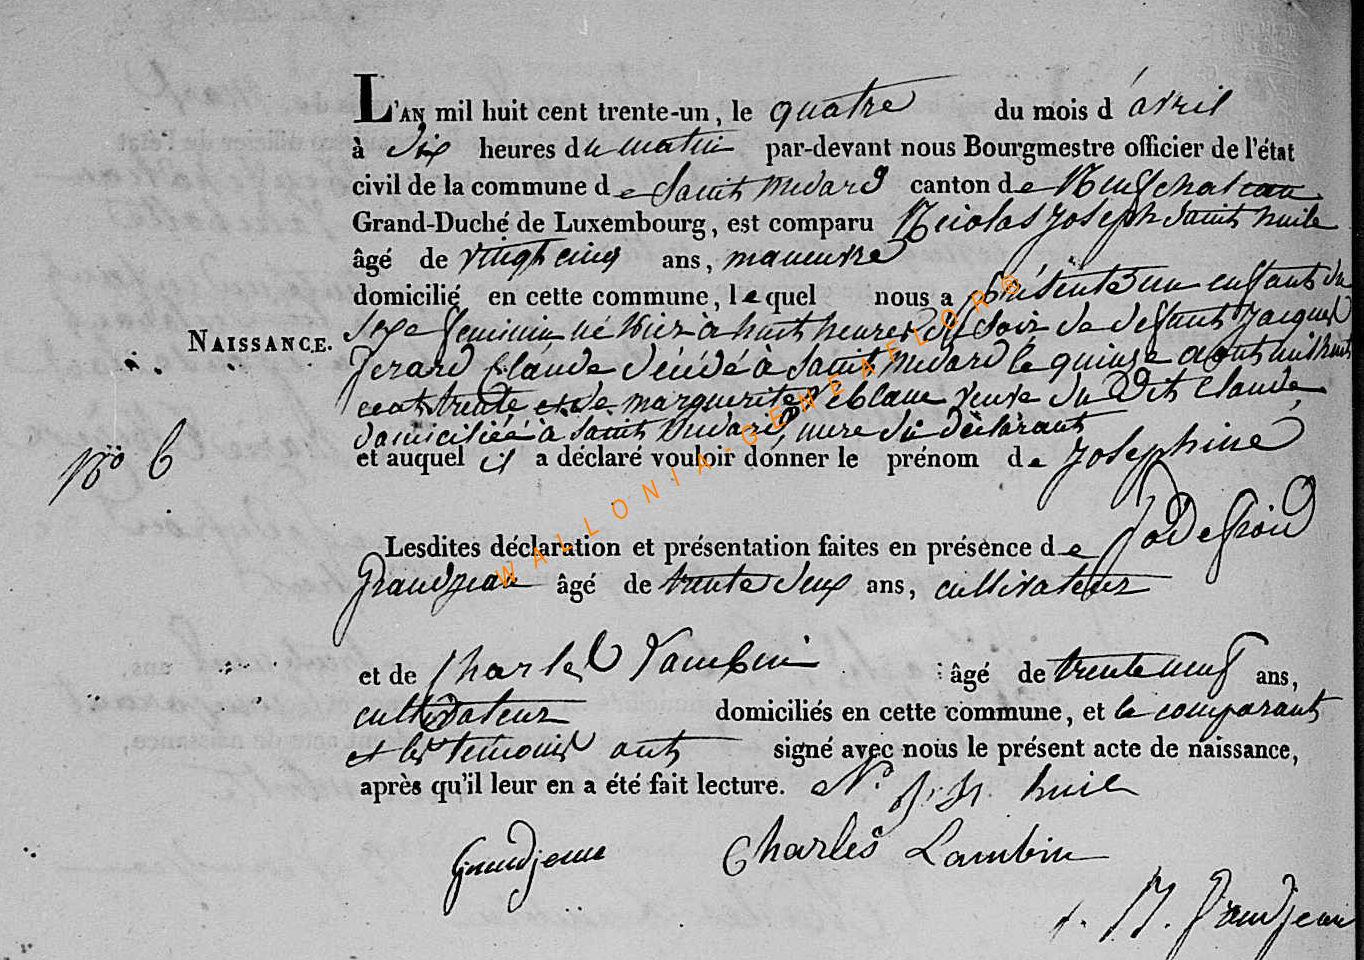 L'AN mil huit cent trente-un, le quatre du mois d'avril
à dix heures du matin par-devant nous Bourgmestre officier de l'état
civil de la commune de Saint Medard canton de Neufchateau
Grand-Duché de Luxembourg, est comparu Nicolas Joseph Saint huile
âgé de vingt cinq ans, maneuvre
domicilié en cette commune, lequel nous a présenté un enfant du
NAISSANCE.
sexe feminin né hier à huit heures du soir de defunt Jacques
Gerard Claude décédé à Saint Medard le quinze aout mil huit
cent trente et de marguerite Leblanc veuve du dit Claude,
domiciliée à Saint Medard, mere du déclarant
No 6
et auquel il a déclaré vouloir donner le prénom de Josephine
Lesdites déclaration et présentation faites en présence de Godefroid
Grandjean âgé de trente deux ans, cultivateur
et de Charles Lambin âgé de trente neuf ans,
cultivateur domiciliés en cette commune, et le comparant
et les temoins ont signé avec nous le présent acte de naissance,
après qu'il leur en a été fait lecture. N. J. St. huile
Grandjean Charles Lambin
Grandjean
WALLONIA-GENEAFLOR®